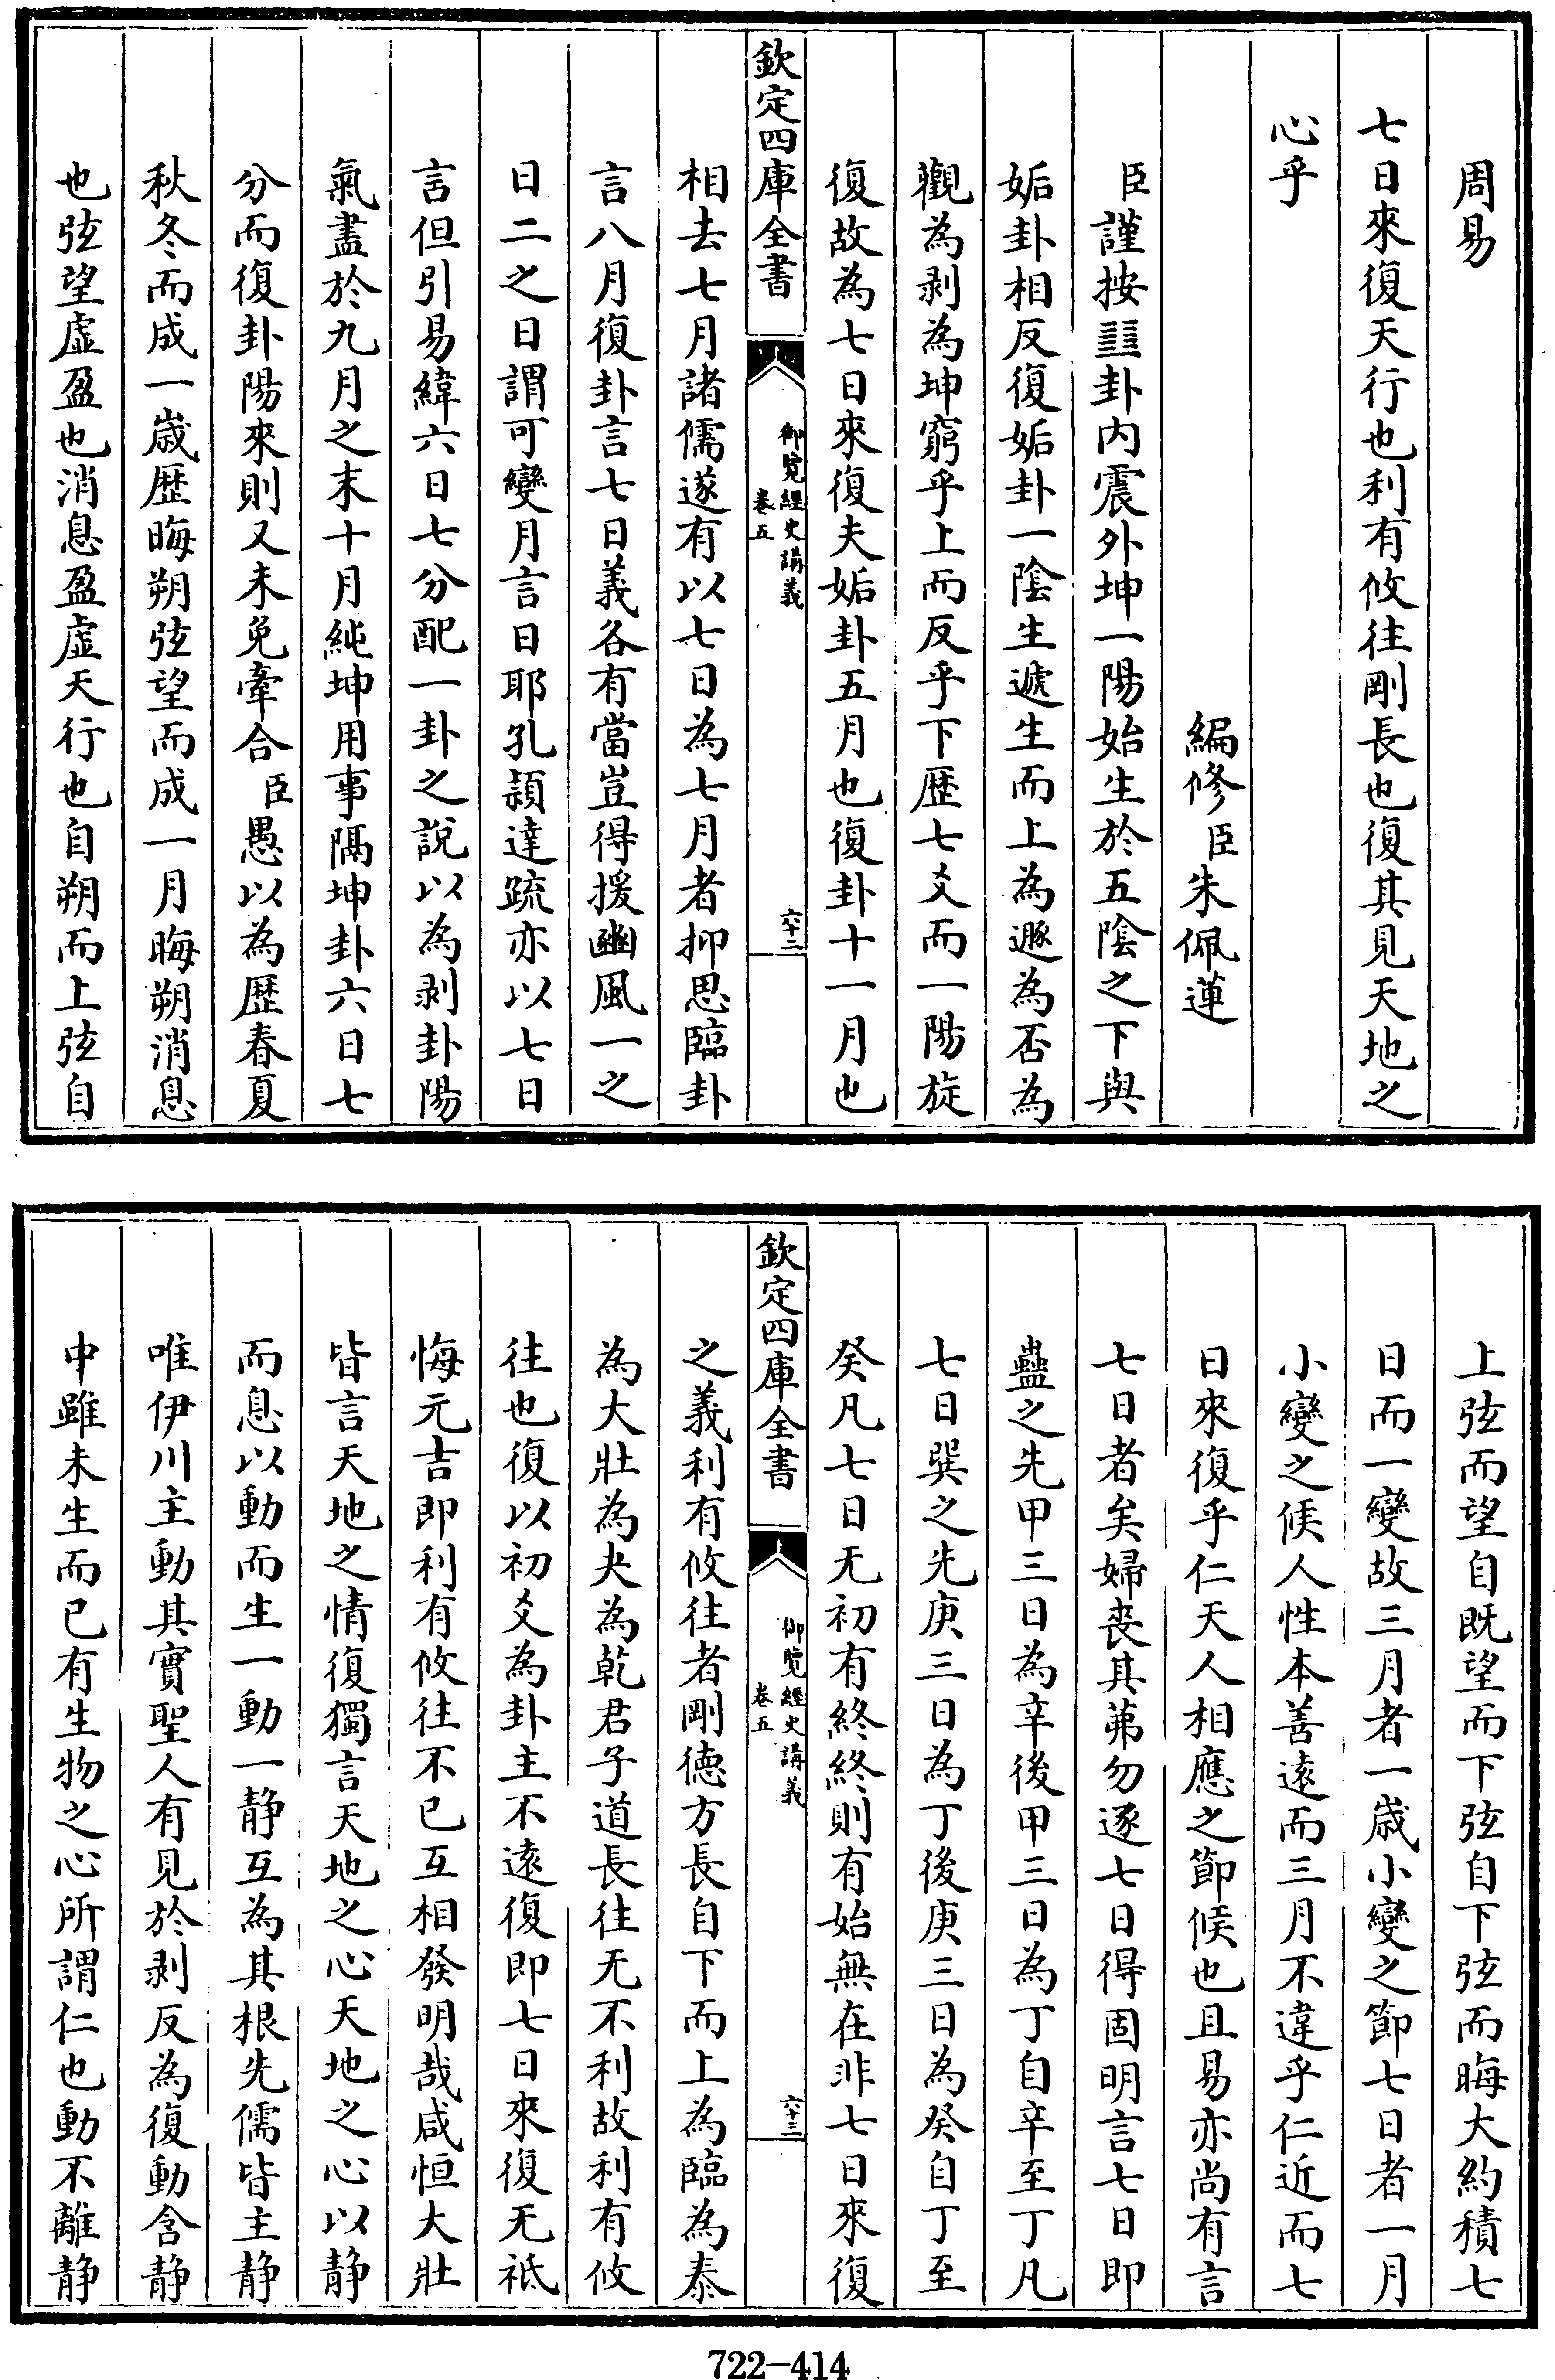 周易
七日來復天行也利有攸往剛長也復其見天地之
心乎
編修臣朱佩蓮
臣謹按䷗卦内震外坤一陽始生於五陰之下與
姤卦相反復姤卦一陰生遞生而上為遯為否為
觀為剥為坤窮乎上而反乎下歴七爻而一陽旋
復故為七日來復夫姤卦五月也復卦十一月也
欽定四庫全書
御覽經史講義
卷五
六十二
相去七月諸儒遂有以七日為七月者抑思臨卦
言八月復卦言七日義各有當豈得援豳風一之
日二之日謂可變月言日耶孔頴達疏亦以七日
言但引易緯六日七分配一卦之說以為剥卦陽
氣盡於九月之末十月純坤用事隔坤卦六日七
分而復卦陽來則又未免牽合臣愚以為歴春夏
秋冬而成一歲歴晦朔弦望而成一月晦朔消息
也弦望虛盈也消息盈虛天行也自朔而上弦自
上弦而望自既望而下弦自下弦而晦大約積七
日而一變故三月者一歲小變之節七日者一月
小變之候人性本善遠而三月不違乎仁近而七
日來復乎仁天人相應之節候也且易亦尚有言
七日者矣婦喪其茀勿逐七日得固明言七日即
蠱之先甲三日為辛後甲三日為丁自辛至丁凡
七日巽之先庚三日為丁後庚三日為癸自丁至
癸凡七日无初有終終則有始無在非七日來復
欽定四庫全書
御覽經史講義
卷五
六十三
之義利有攸往者剛德方長自下而上為臨為泰
為大壯為夬為乾君子道長往无不利故利有攸
往也復以初爻為卦主不遠復即七日來復无祗
悔元吉即利有攸往不已互相發明哉咸恒大壯
皆言天地之情復獨言天地之心天地之心以静
而息以動而生一動一静互為其根先儒皆主静
唯伊川主動其實聖人有見於剥反為復動含静
中雖未生而已有生物之心所謂仁也動不離静
722-414